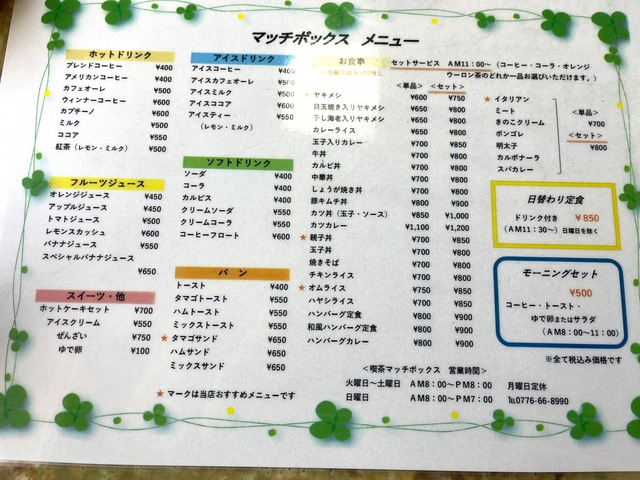 マッチボックス メニュー
ホットドリンク
ブレンドコーヒー ¥400
アメリカンコーヒー ¥400
カフェオーレ ¥500
ウィンナーコーヒー ¥600
カプチーノ ¥600
ミルク ¥500
ココア ¥550
紅茶（レモン・ミルク） ¥500
フルーツジュース
オレンジジュース ¥450
アップルジュース ¥450
トマトジュース ¥500
レモンスカッシュ ¥600
バナナジュース ¥550
スペシャルバナナジュース
¥650
スイーツ・他
ホットケーキセット ¥700
アイスクリーム ¥550
ぜんざい ¥750
ゆで卵 ¥100
アイスドリンク
アイスコーヒー ¥400
アイスカフェオーレ ¥500
アイスミルク ¥500
アイスココア ¥600
アイスティー ¥550
（レモン・ミルク）
ソフトドリンク
ソーダ ¥400
コーラ ¥400
カルピス ¥400
クリームソーダ ¥550
クリームコーラ ¥550
コーヒーフロート ¥600
パン
トースト ¥400
タマゴトースト ¥550
ハムトースト ¥550
ミックストースト ¥550
★タマゴサンド ¥650
ハムサンド ¥650
ミックスサンド ¥650
★マークは当店おすすめメニューです
お食事
セットサービス AM11：00～（コーヒー・コーラ・オレンジ
ウーロン茶のどれか一品お選びいただけます。）
＜単品＞ ＜セット＞
★ヤキメシ ¥600 ¥750
目玉焼き入りヤキメシ ¥650 ¥800
干し海老入りヤキメシ ¥650 ¥800
カレーライス ¥650 ¥800
玉子入りカレー ¥700 ¥850
牛丼 ¥700 ¥800
カルビ丼 ¥700 ¥800
中華丼 ¥700 ¥800
しょうが焼き丼 ¥700 ¥800
豚キムチ丼 ¥800 ¥900
カツ丼（玉子・ソース） ¥850 ¥1,000
カツカレー ¥1,100 ¥1,200
★親子丼 ¥700 ¥850
玉子丼 ¥700 ¥800
焼きそば ¥700 ¥800
チキンライス ¥700 ¥800
★オムライス ¥750 ¥850
ハヤシライス ¥700 ¥850
ハンバーグ定食 ¥800 ¥900
和風ハンバーグ定食 ¥800 ¥900
ハンバーグカレー ¥800 ¥900
★イタリアン
ミート
きのこクリーム
ボンゴレ
明太子
カルボナーラ
スパカレー
＜単品＞
¥700
＜セット＞
¥800
日替わり定食
ドリンク付き ¥850
（AM11：30～）日曜日を除く
モーニングセット
¥500
コーヒー・トースト・
ゆで卵またはサラダ
（AM8：00～11：00）
※全て税込み価格です
＜喫茶マッチボックス 営業時間＞
火曜日～土曜日 AM8：00～PM8：00 月曜日定休
日曜日 AM8：00～PM7：00 ℡0776-66-8990